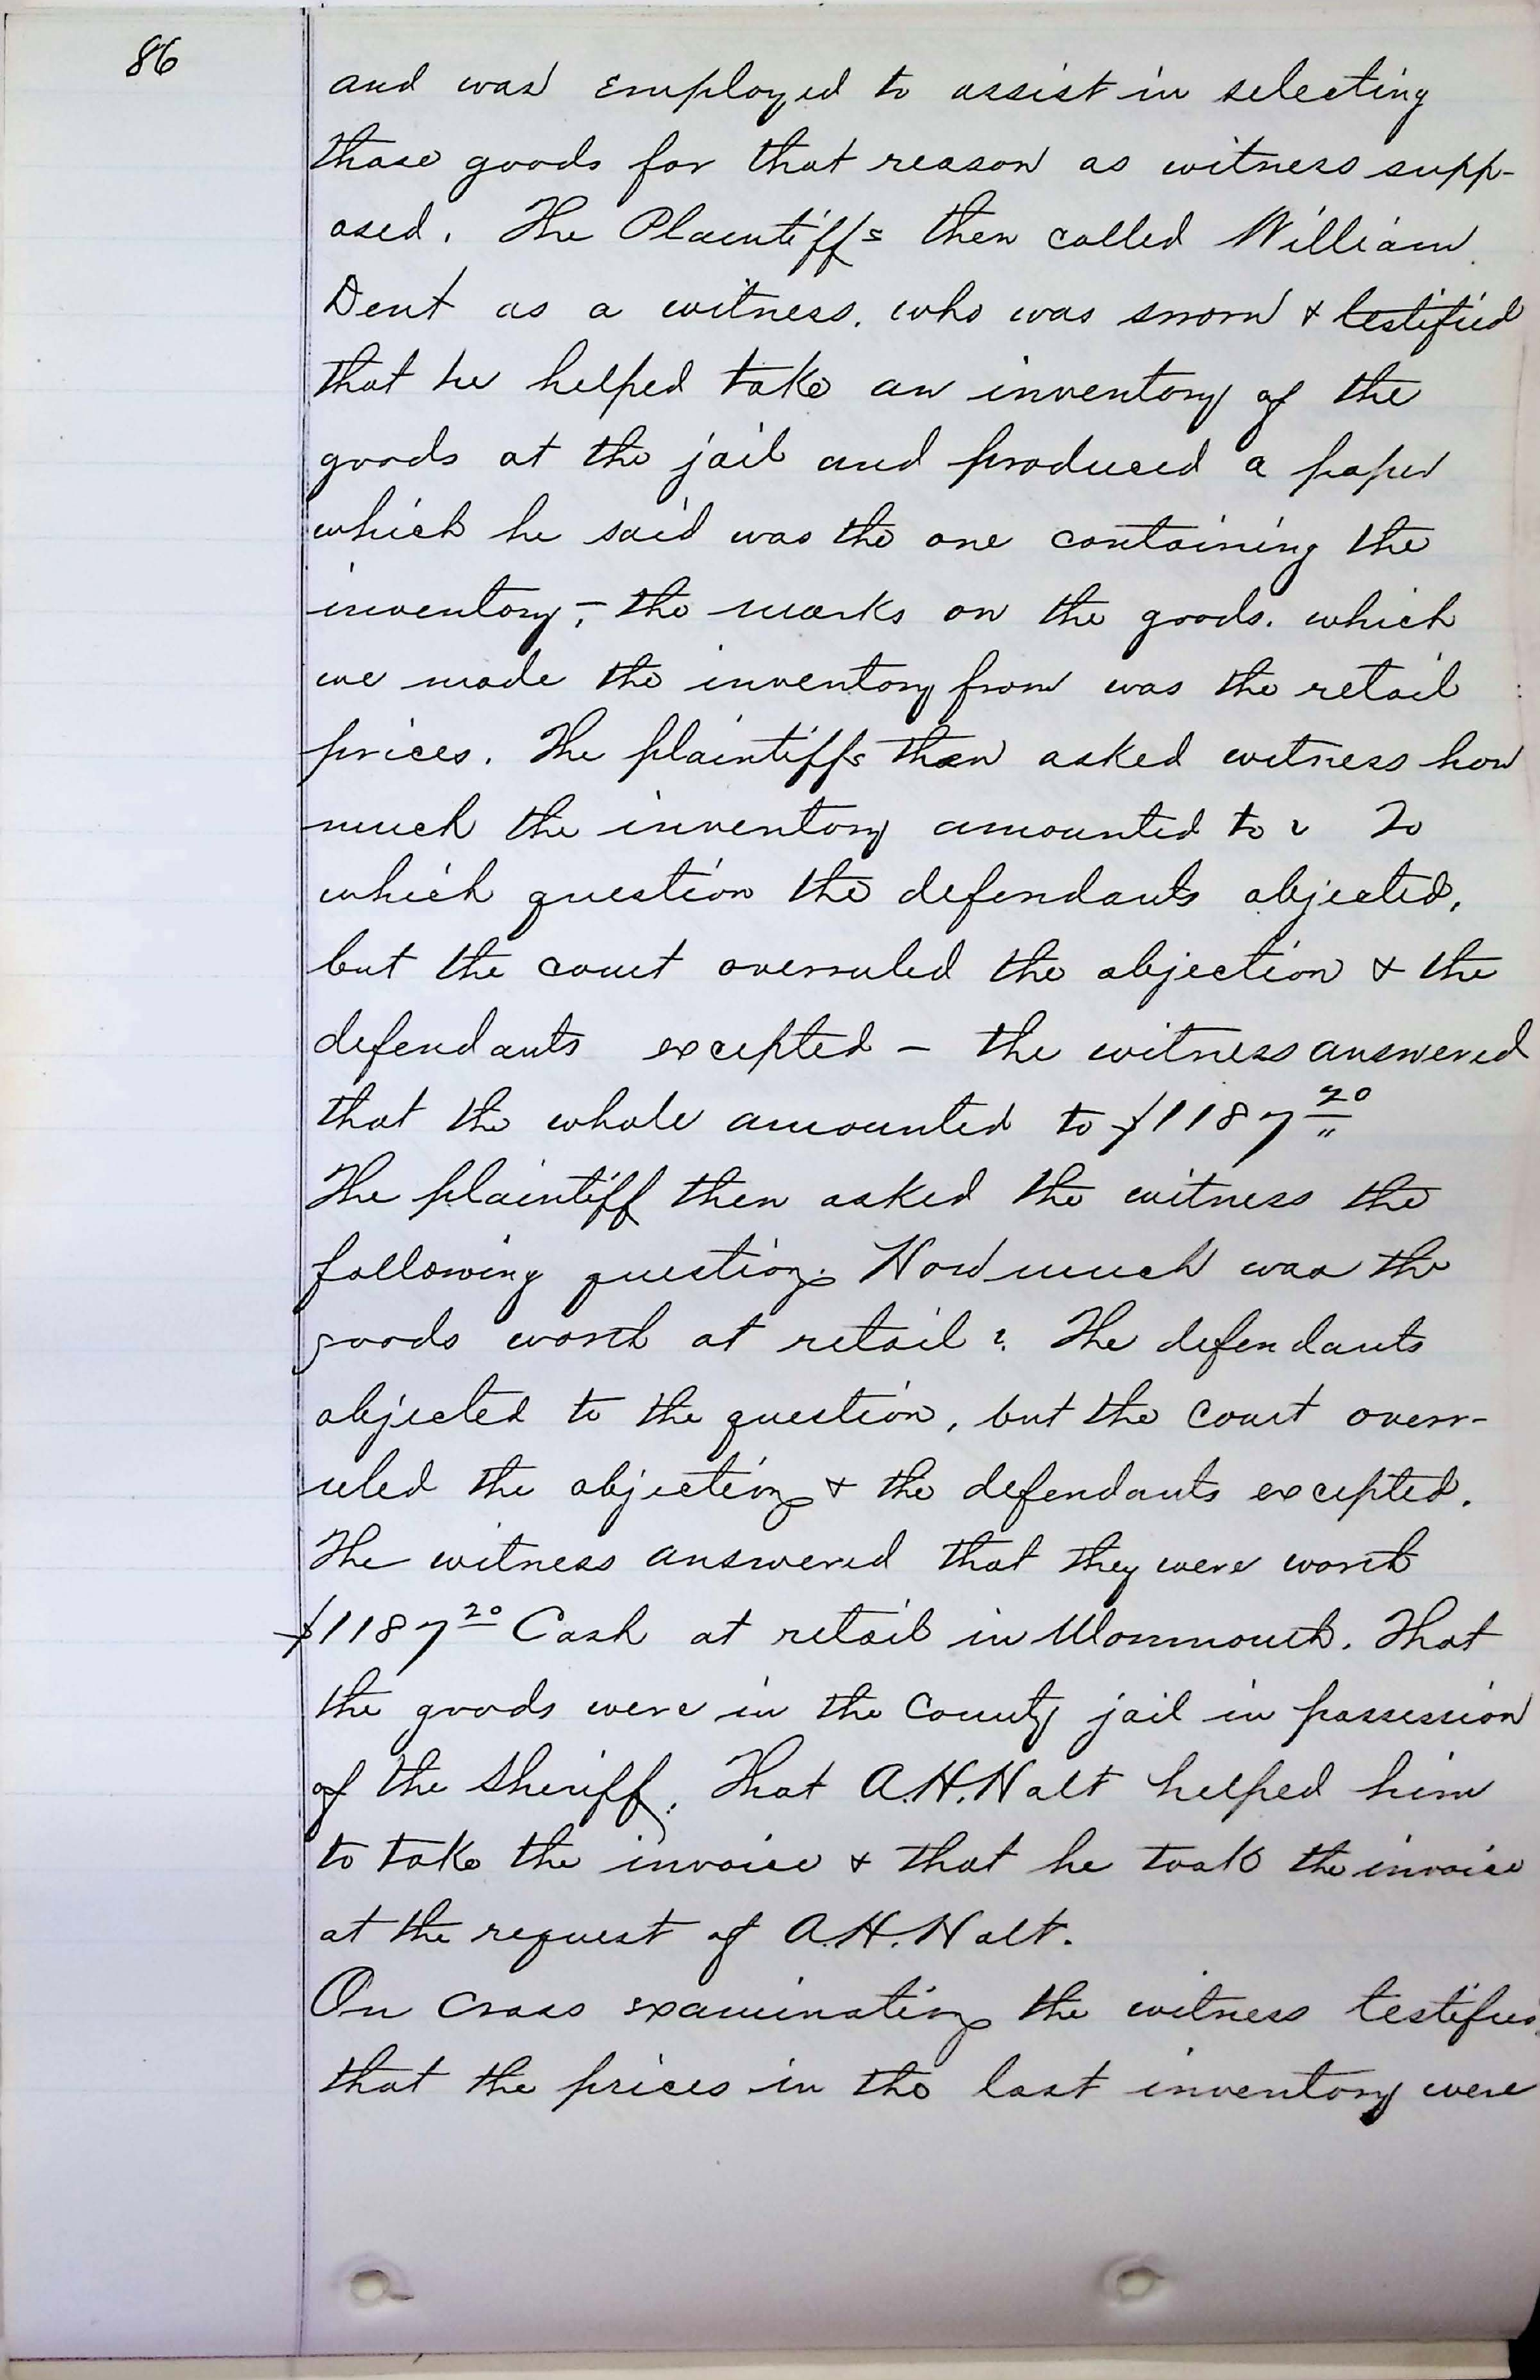 86
and was employed to assist in selecting
those goods for that reason as witness supp-
osed. The Plaintiffs then called William
Dent as a witness. who was sworn & testified
that he helped take an inventory of the
goods at the jail and produced a paper
which he said was the one containing the
inventory; - the marks on the goods. which
we made the inventory from was the retail
prices. The plaintiffs then asked witness how
much the inventory amounted to? To
which question the defendants objected,
but the court overruled the objection & the
defendants excepted - the witness answered
that the whole amounted to $1187 20
The plaintiff then asked the witness the
following question. How much was the
goods worth at retail? The defendants
objected to the question, but the Court overr-
uled the objection & the defendants excepted.
The witness answered that they were worth
$1187 20 Cash at retail in Monmouth. That
the goods were in the County jail in possession
of the Sheriff. That A.H. Holt helped him
to take the invoice & that he took the invoice
at the request of A.H. Holt.
On Cross examination the witness testified
that the prices in the last inventory were